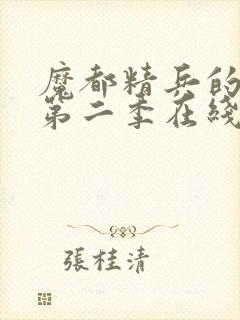 魔都精兵的
第二季在綫
張桂清